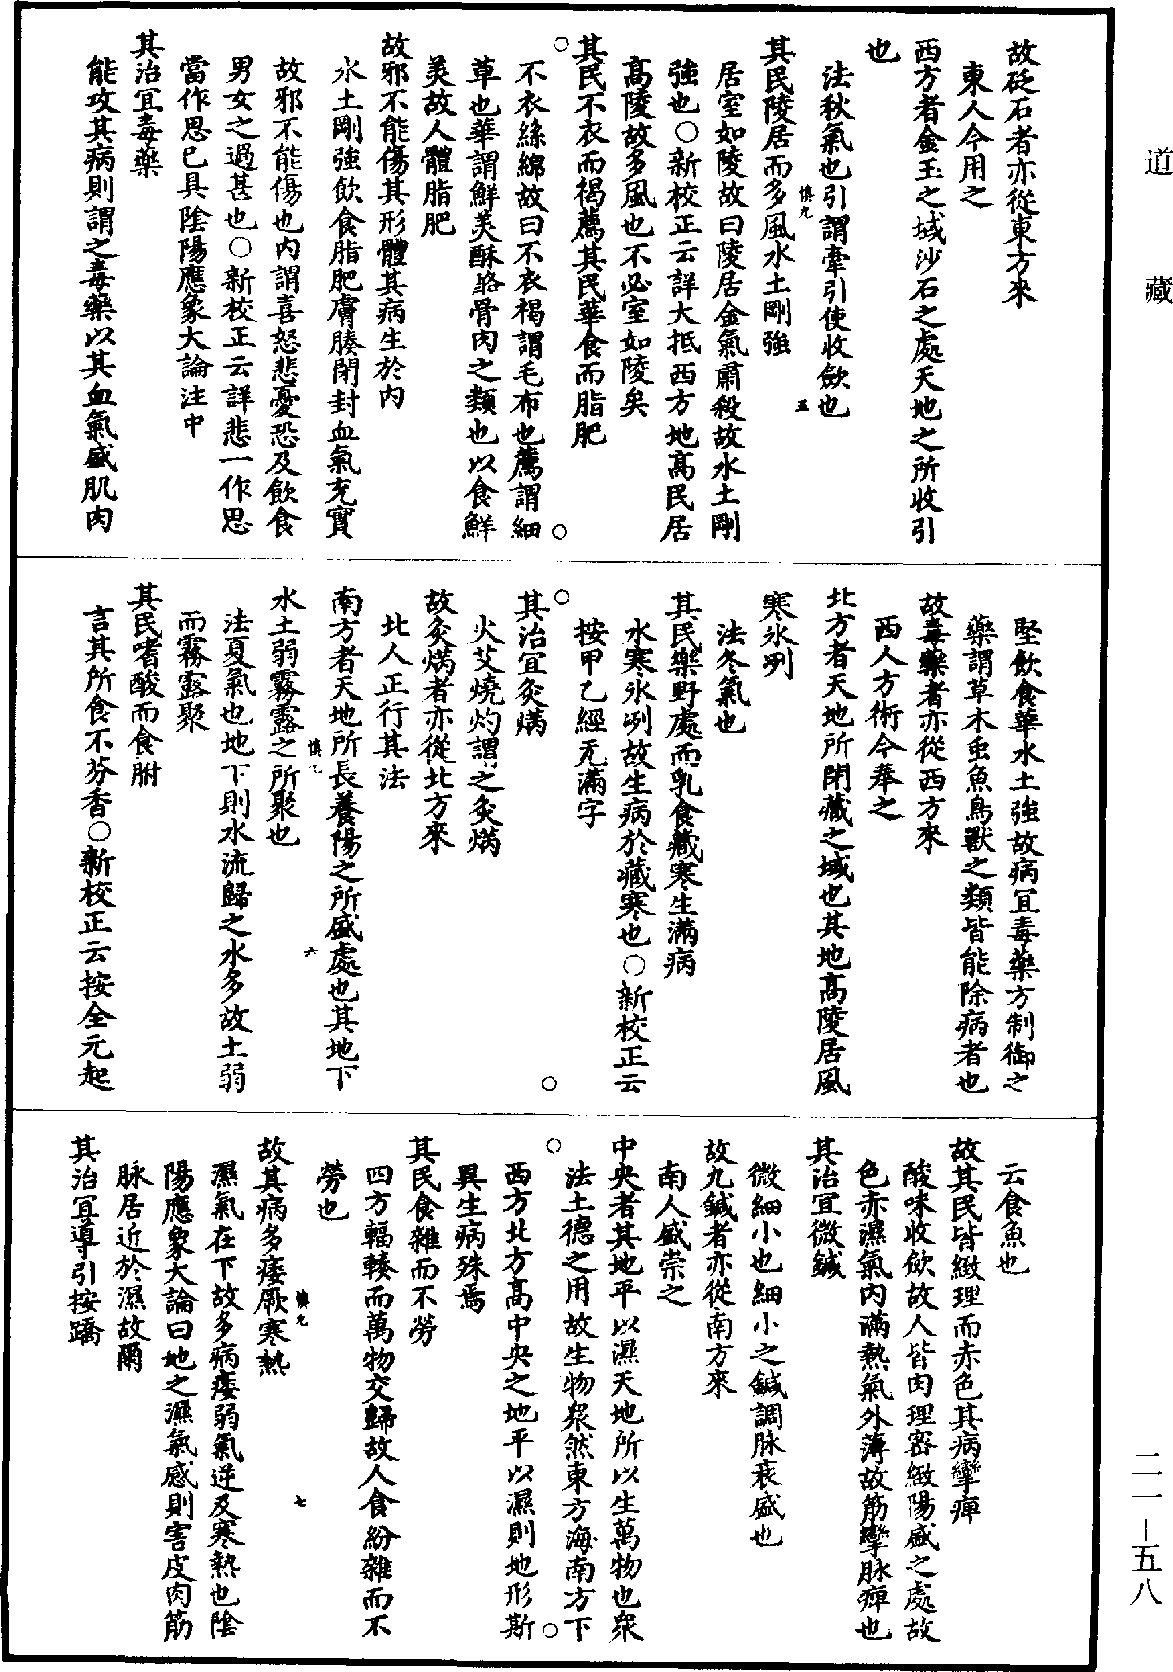 道藏
故砭石者亦從東方來
東人今用之
西方者金玉之域沙石之處天地之所收引
也
法秋氣也引謂牽引使收歛也
慎九
五
其民陵居而多風水土剛強
居室如陵故曰陵居金氣肅殺故水土剛
強也○新校正云詳大抵西方地高民居
高陵故多風也不必室如陵矣
其民不衣而褐薦其民華食而脂肥
不衣絲綿故曰不衣褐謂毛布也薦謂細
草也華謂鮮美酥酪骨肉之類也以食鮮
美故人體脂肥
故邪不能傷其形體其病生於內
水土剛強飲食脂肥膚腠閉封血氣充實
故邪不能傷也內謂喜怒悲憂恐及飲食
男女之過甚也○新校正云詳悲一作思
當作思已具陰陽應象大論注中
其治宜毒藥
能攻其病則謂之毒藥以其血氣盛肌肉
堅飲食華水土強故病宜毒藥方制御之
藥謂草木虫魚鳥獸之類皆能除病者也
故毒藥者亦從西方來
西人方術今奉之
北方者天地所閉藏之域也其地高陵居風
寒氷冽
法冬氣也
其民樂野處而乳食藏寒生滿病
水寒氷冽故生病於藏寒也○新校正云
按甲乙經无滿字
其治宜灸焫
火艾燒灼謂之灸焫
故灸焫者亦從北方來
北人正行其法
南方者天地所長養陽之所盛處也其地下
慎九
六
水土弱霧露之所聚也
法夏氣也地下則水流歸之水多故土弱
而霧露聚
其民嗜酸而食胕
言其所食不芬香○新校正云按全元起
云食魚也
故其民皆緻理而赤色其病攣痺
酸味收歛故人皆肉理密緻陽盛之處故
色赤濕氣內滿熱氣外薄故筋攣脉痺也
其治宜微鍼
微細小也細小之鍼調脉衰盛也
故九鍼者亦從南方來
南人盛崇之
中央者其地平以濕天地所以生萬物也衆
法土德之用故生物衆然東方海南方下
西方北方高中央之地平以濕則地形斯
異生病殊焉
其民食雜而不勞
四方輻輳而萬物交歸故人食紛雜而不
勞也
慎九
七
故其病多痿厥寒熱
濕氣在下故多病痿弱氣逆及寒熱也陰
陽應象大論曰地之濕氣感則害皮肉筋
脉居近於濕故爾
其治宜導引按蹻
二一－五八